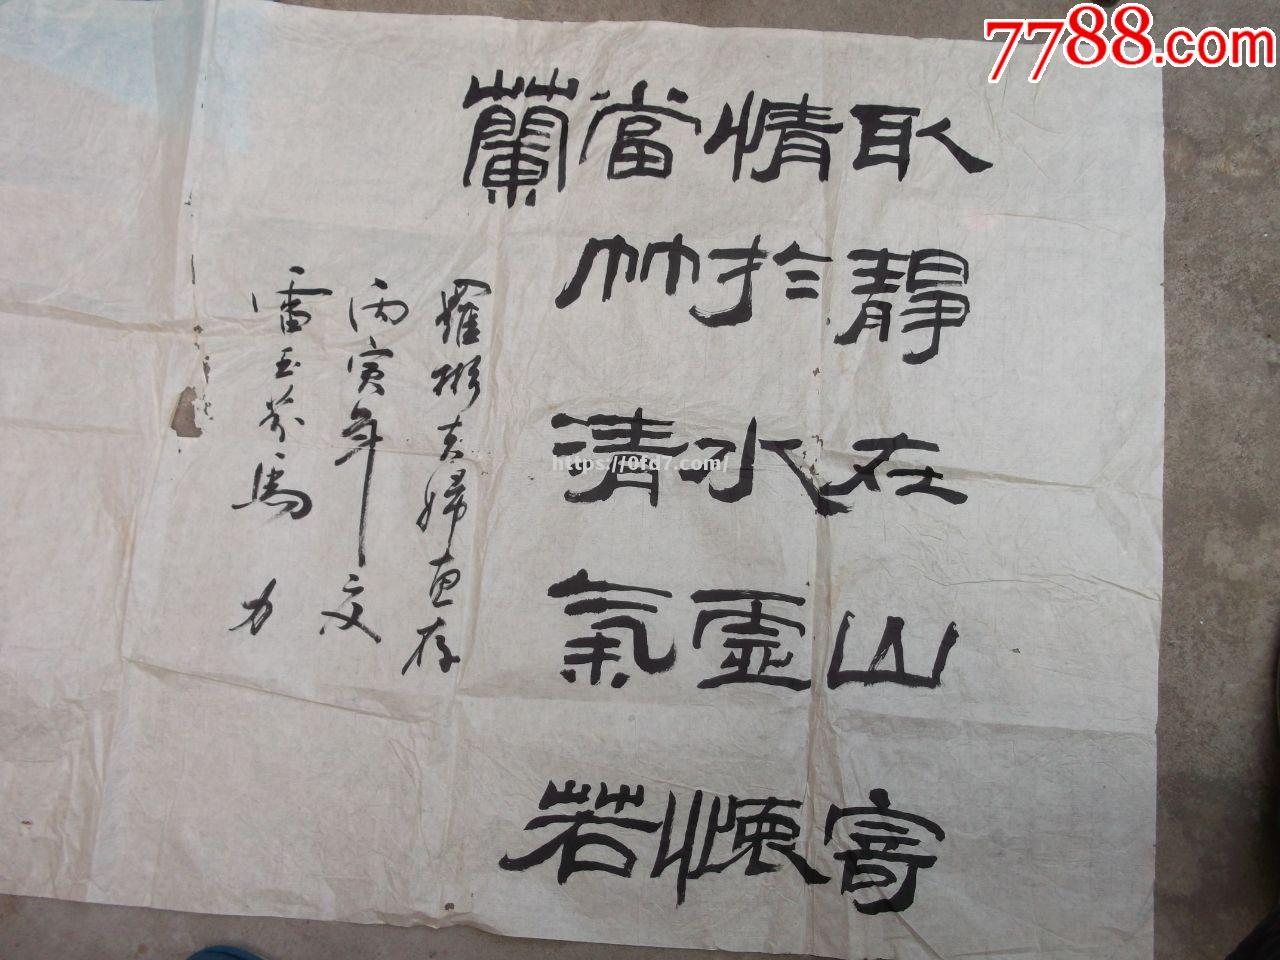 7788.com
取静在山寄
情於水虚懷
當竹清氣若
蘭
羅彬夫婦惠存
丙寅年文
雷玉芬馬力
https://0fd7.com/